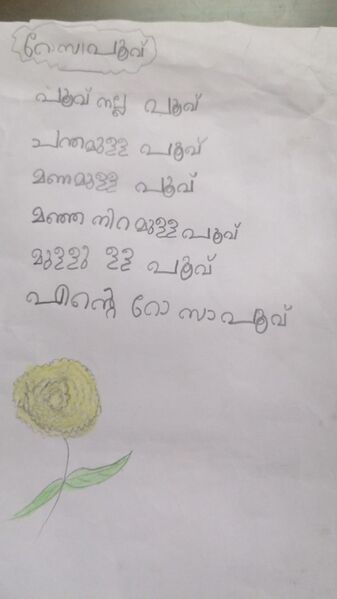 റോസാപൂവ്
പൂവ് നല്ല പൂവ്
ചന്തമുള്ള പൂവ്
മണമുള്ള പൂവ്
മഞ്ഞ നിറമുള്ള പൂവ്
മുള്ളു ള്ള പൂവ്
എന്റെ റോ സാപൂവ്